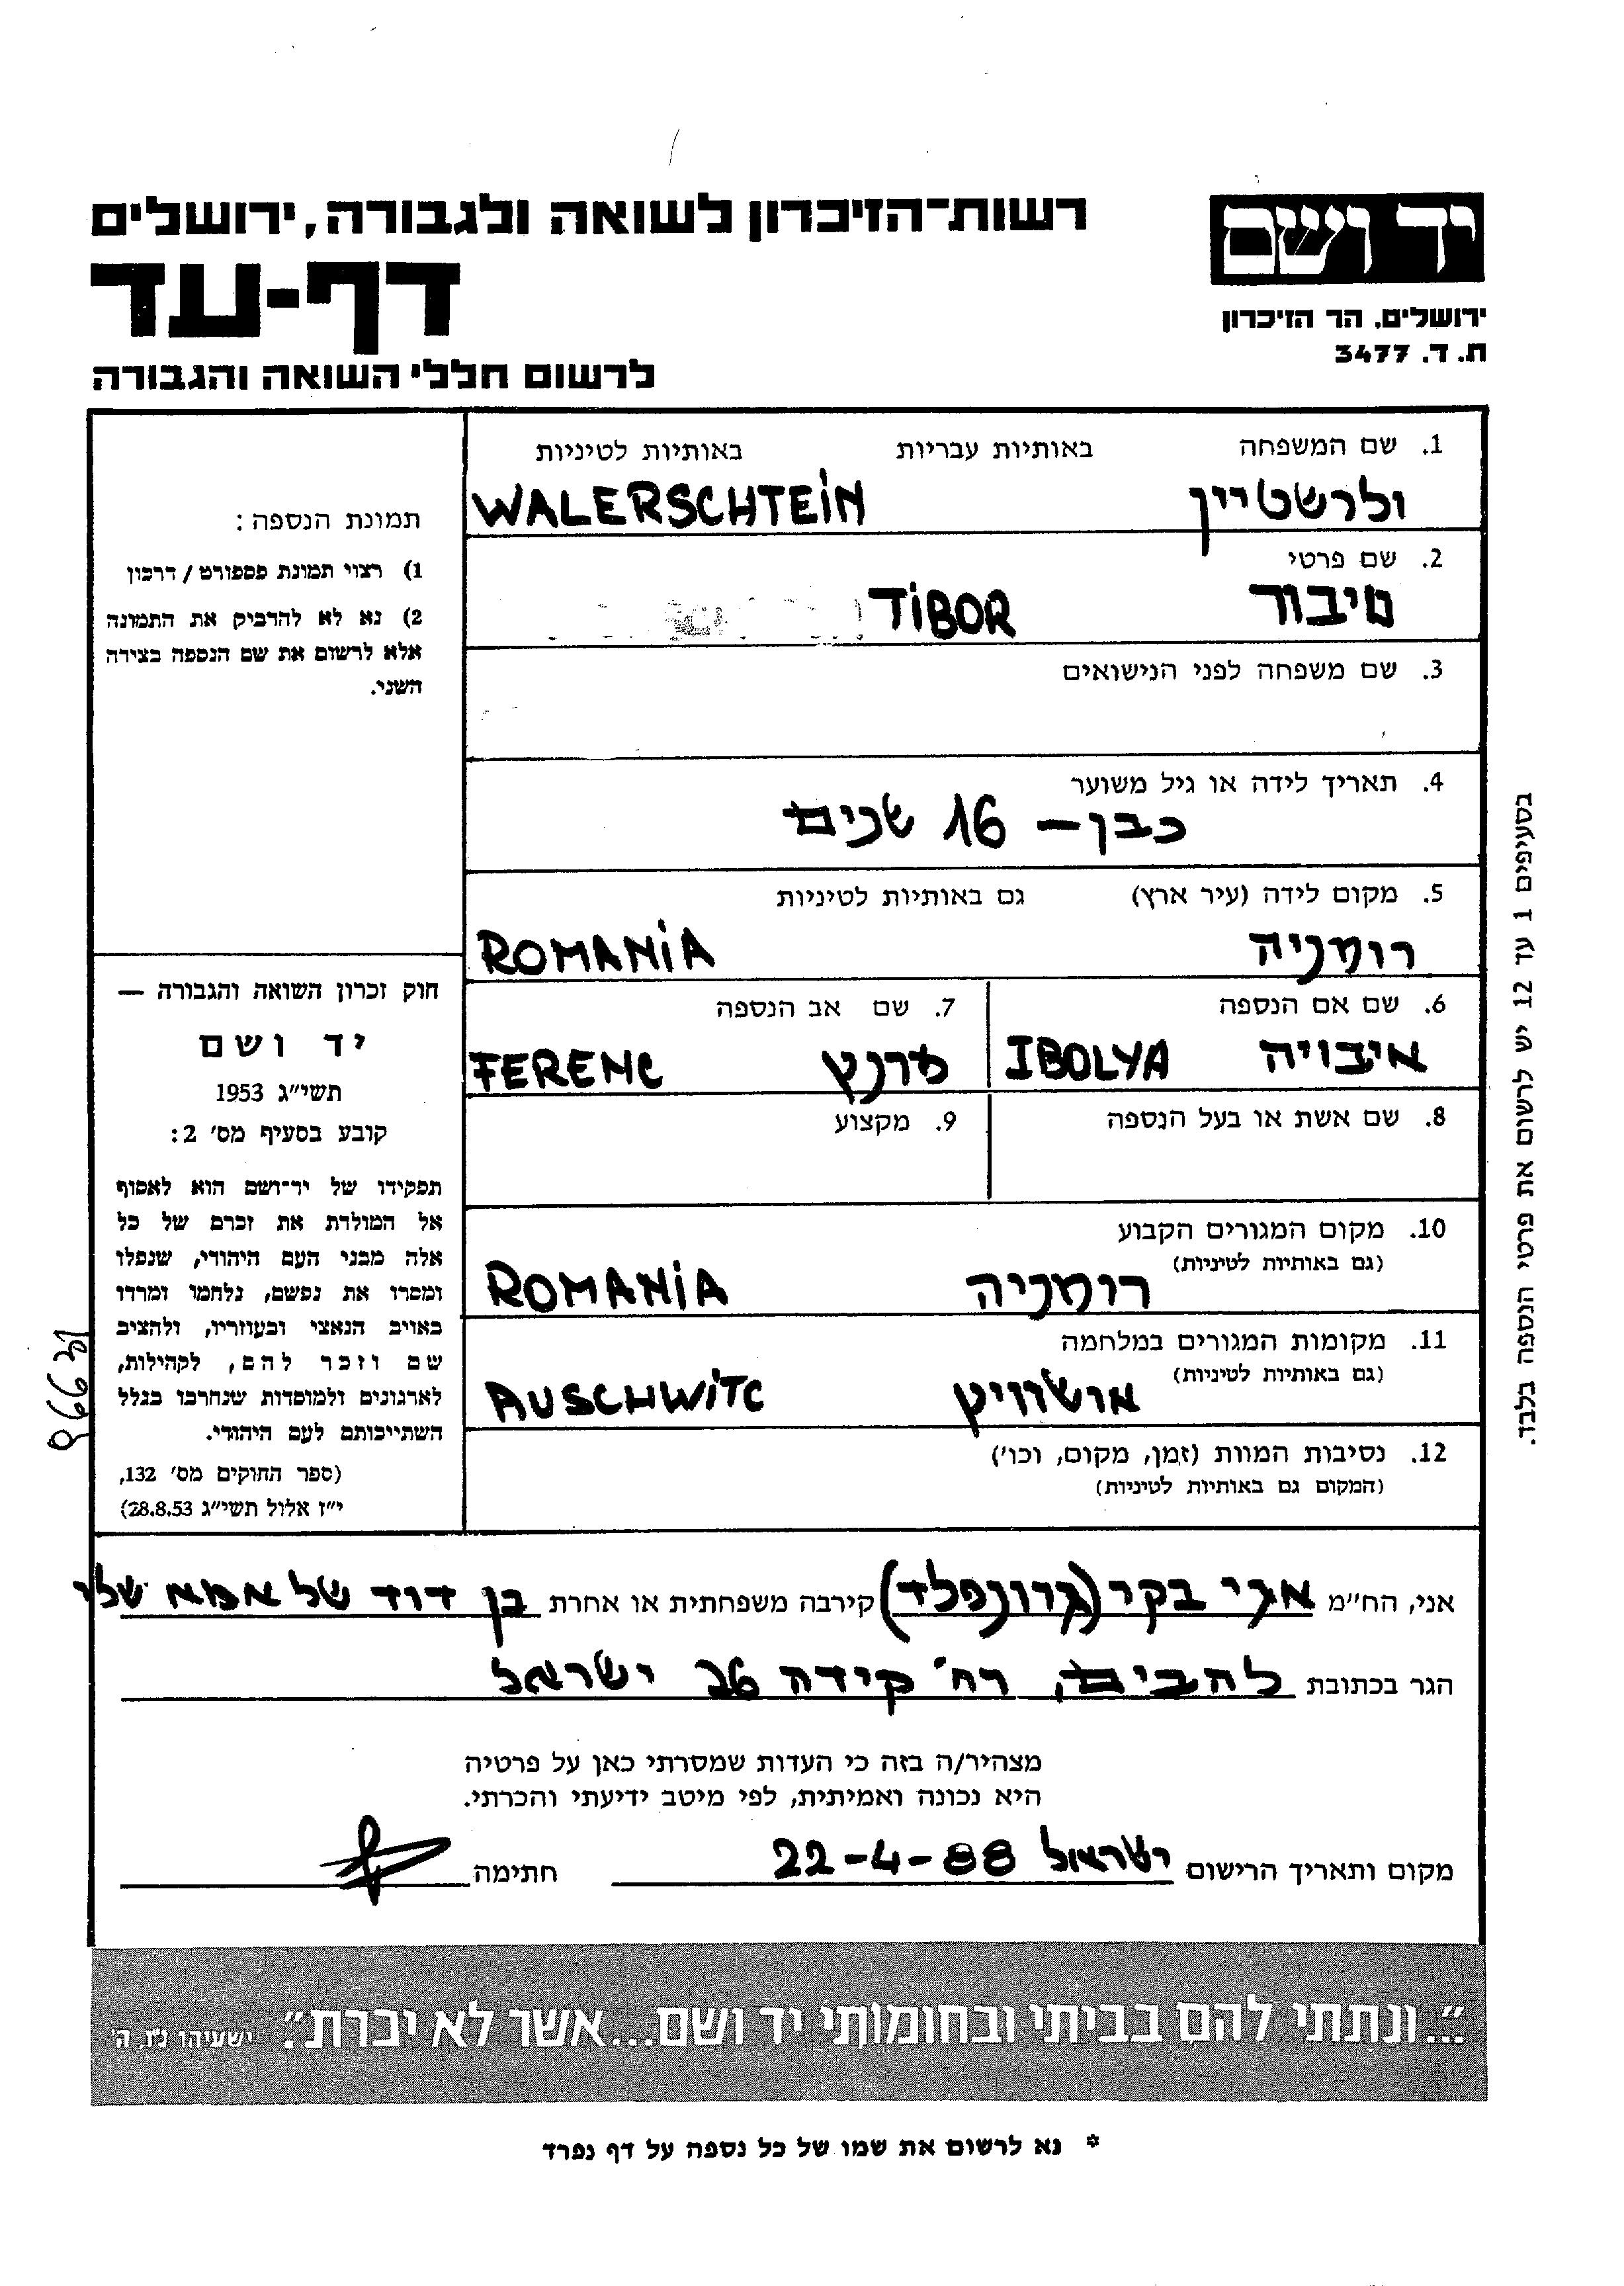 רשות-הזיכרון לשואה ולגבורה, ירושלים
יד ושם
דף-עד
ירושלים, הר הזיכרון
ת. ד. 3477
לרשום חללי השואה והגבורה
1. שם המשפחה באותיות עבריות באותיות לטיניות
ולרשטיין WALERSCHTEiN
2. שם פרטי
טיבור TiBOR
3. שם משפחה לפני הנישואים
4. תאריך לידה או גיל משוער
כבן – 16 שנים
5. מקום לידה (עיר ארץ) גם באותיות לטיניות
רומניה ROMANiA
6. שם אם הנספה
איבויה IBOLYA
7. שם אב הנספה
פרנץ FERENC
8. שם אשת או בעל הנספה
9. מקצוע
10. מקום המגורים הקבוע
(גם באותיות לטיניות)
רומניה ROMANiA
11. מקומות המגורים במלחמה
(גם באותיות לטיניות)
אושוויץ AUSCHWiTC
12. נסיבות המוות (זמן, מקום, וכו')
(המקום גם באותיות לטיניות)
תמונת הנספה:
1) רצוי תמונת פספורט / דרכון
2) נא לא להדביק את התמונה
אלא לרשום את שם הנספה בצידה
השני.
חוק זכרון השואה והגבורה —
יד ושם
תשי"ג 1953
קובע בסעיף מס' 2:
תפקידו של יד-ושם הוא לאסוף
אל המולדת את זכרם של כל
אלה מבני העם היהודי, שנפלו
ומסרו את נפשם, נלחמו ומרדו
באויב הנאצי ובעוזריו, ולהציב
שם וזכר להם, לקהילות,
לארגונים ולמוסדות שנחרבו בגלל
השתייכותם לעם היהודי.
(ספר החוקים מס' 132,
י"ז אלול תשי"ג 28.8.53)
בסעיפים 1 עד 12 יש לרשום את פרטי הנספה בלבד.
אני, הח"מ אגי בקר (גרונפלד) קירבה משפחתית או אחרת בן דוד של אמא שלי
הגר בכתובת להבים, רח' קידה 26 ישראל
מצהיר/ה בזה כי העדות שמסרתי כאן על פרטיה
היא נכונה ואמיתית, לפי מיטב ידיעתי והכרתי.
מקום ותאריך הרישום ישראל 22-4-88 חתימה
"...ונתתי להם בביתי ובחומותי יד ושם...אשר לא יכרת". ישעיהו נו, ה'
* נא לרשום את שמו של כל נספה על דף נפרד